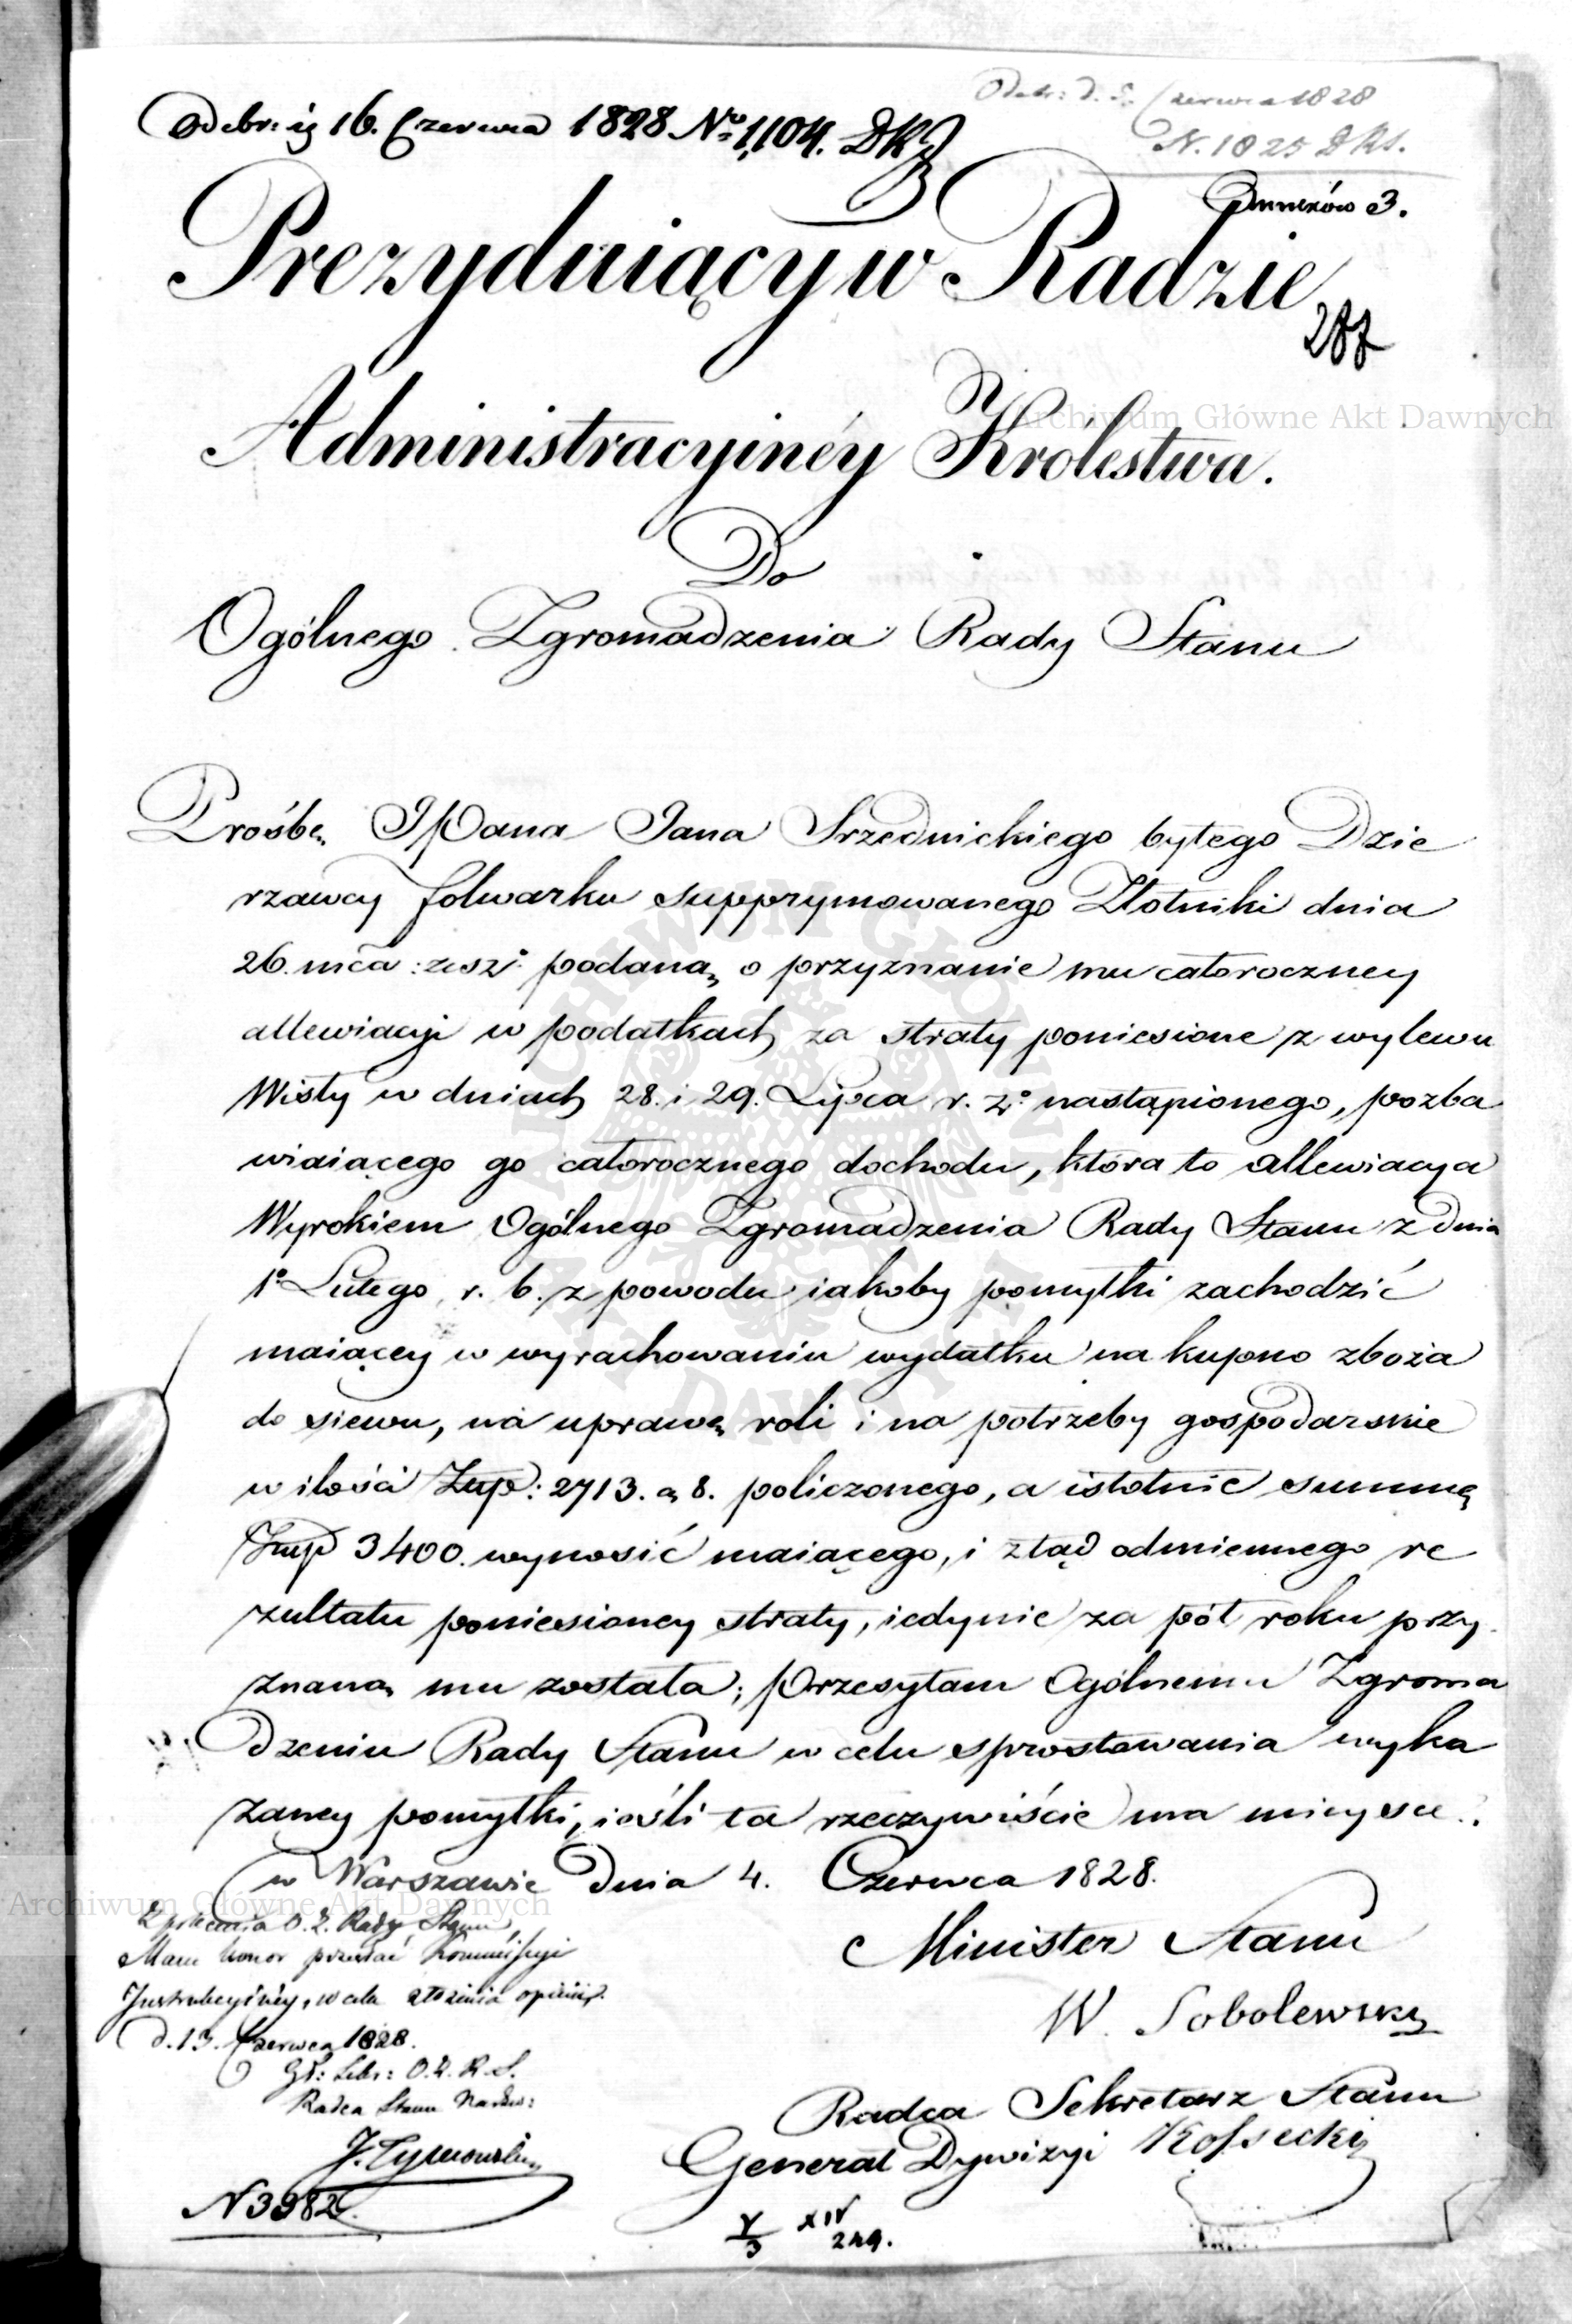 Odebr: d. 5. Czerwca 1828
N. 1025 DKS.
Odebr: ig 16. Czerwca 1828 No 1,104. DKS
Annexów 3.
Prezyduiący w Radzie
287
Administracyinéy Królestwa.
Do
Ogólnego Zgromadzenia Rady Stanu
Prośbę JPana Jana Srzednickiego byłego Dzie
rzawcy folwarku supprymowanego Złotniki dnia
26. mca: zesz: podaną o przyznanie mu całoroczney
allewiacyi w podatkach za straty poniesione z wylewu
Wisły w dniach 28. i 29. Lipca r. z: nastąpionego, pozba
wiaiącego go całorocznego dochodu, która to allewiacya
Wyrokiem Ogólnego Zgromadzenia Rady Stanu z dnia
1o Lutego r. b. z powodu iakoby pomyłki zachodzić
maiącey w wyrachowaniu wydatku na kupno zboża
do siewu, na uprawę roli i na potrzeby gospodarskie
w ilości Złp: 2713. g 8. policzonego, a istotnie summę
Złp 3400. wynosić maiącego, i ztąd odmiennego re
zultatu poniesioney straty, iedynie za pół roku przy
znaną mu została; Przesyłam Ogólnemu Zgroma
dzeniu Rady Stanu w celu sprostowania wyka
zaney pomyłki, ieśli ta rzeczywiście ma mieysce.
w Warszawie Dnia 4. Czerwca 1828.
Minister Stanu
W. Sobolewski
Radca Sekretarz Stanu
Generał Dywizyi Kossecki
Z polecenia O. Z. Rady Stanu,
Mam honor przesłać Kommissyi
Instrukcyiney, w celu złożenia opinii.
d. 13. Czerwca 1828.
Sekr: O. Z. R. S.
Radca Stanu Nadzw:
J. Tymowski
N 3982.
V/3 XIV
249.
Archiwum Główne Akt Dawnych
Archiwum Główne Akt Dawnych
ARCHIWUM GŁÓWNE AKT DAWNYCH